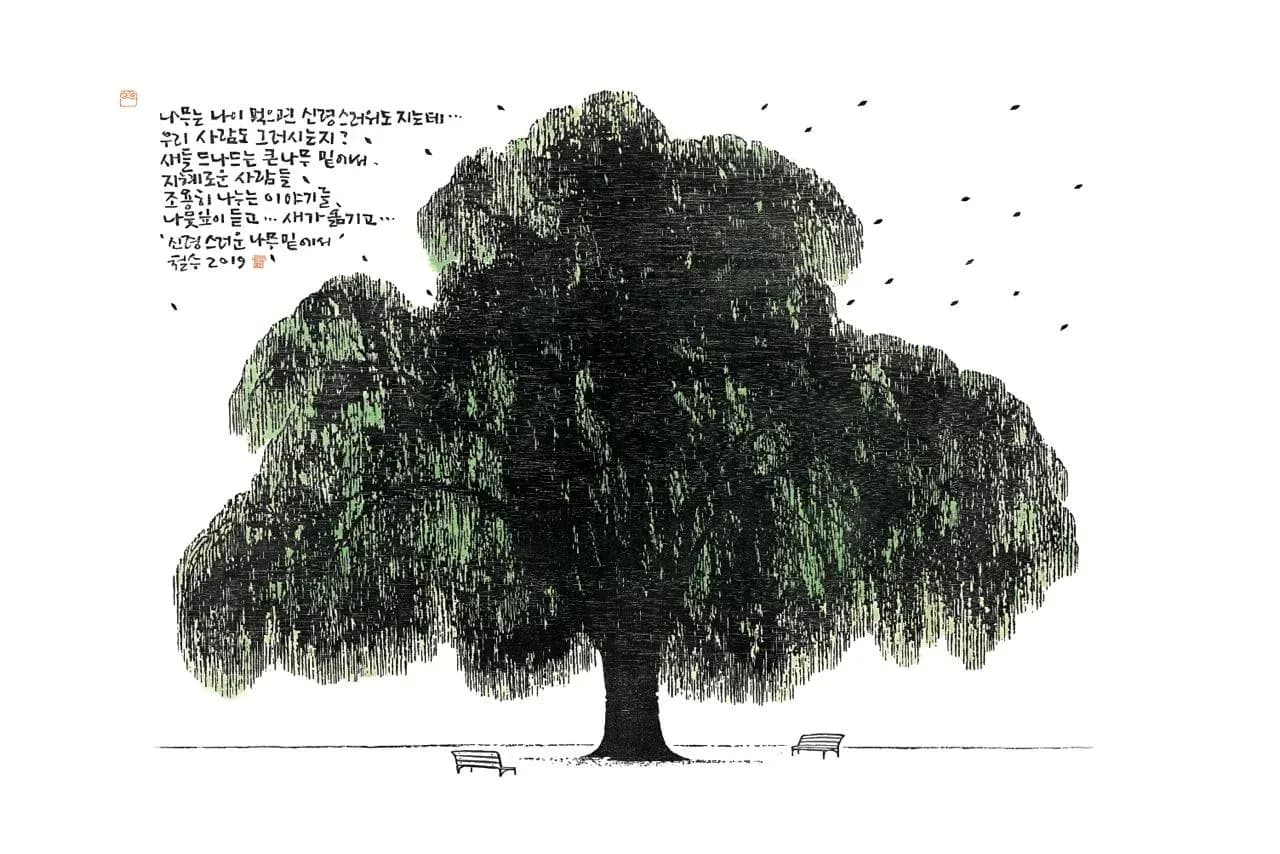 나무는 나이 먹으면 신령스러워도 지는데…
우리 사람도 그러시는지?
새들 드나드는 큰 나무 밑에서.
지혜로운 사람들
조용히 나누는 이야기를
나뭇잎이 듣고… 새가 옮기고…
'신령스러운 나무 밑에서'
철수 2019